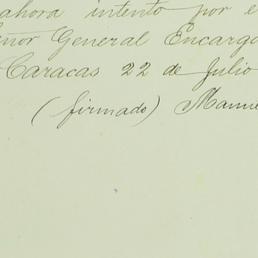 ahora intento por e
eñor General Encarga
Caracas 22 de Julio
(firmado) Manue